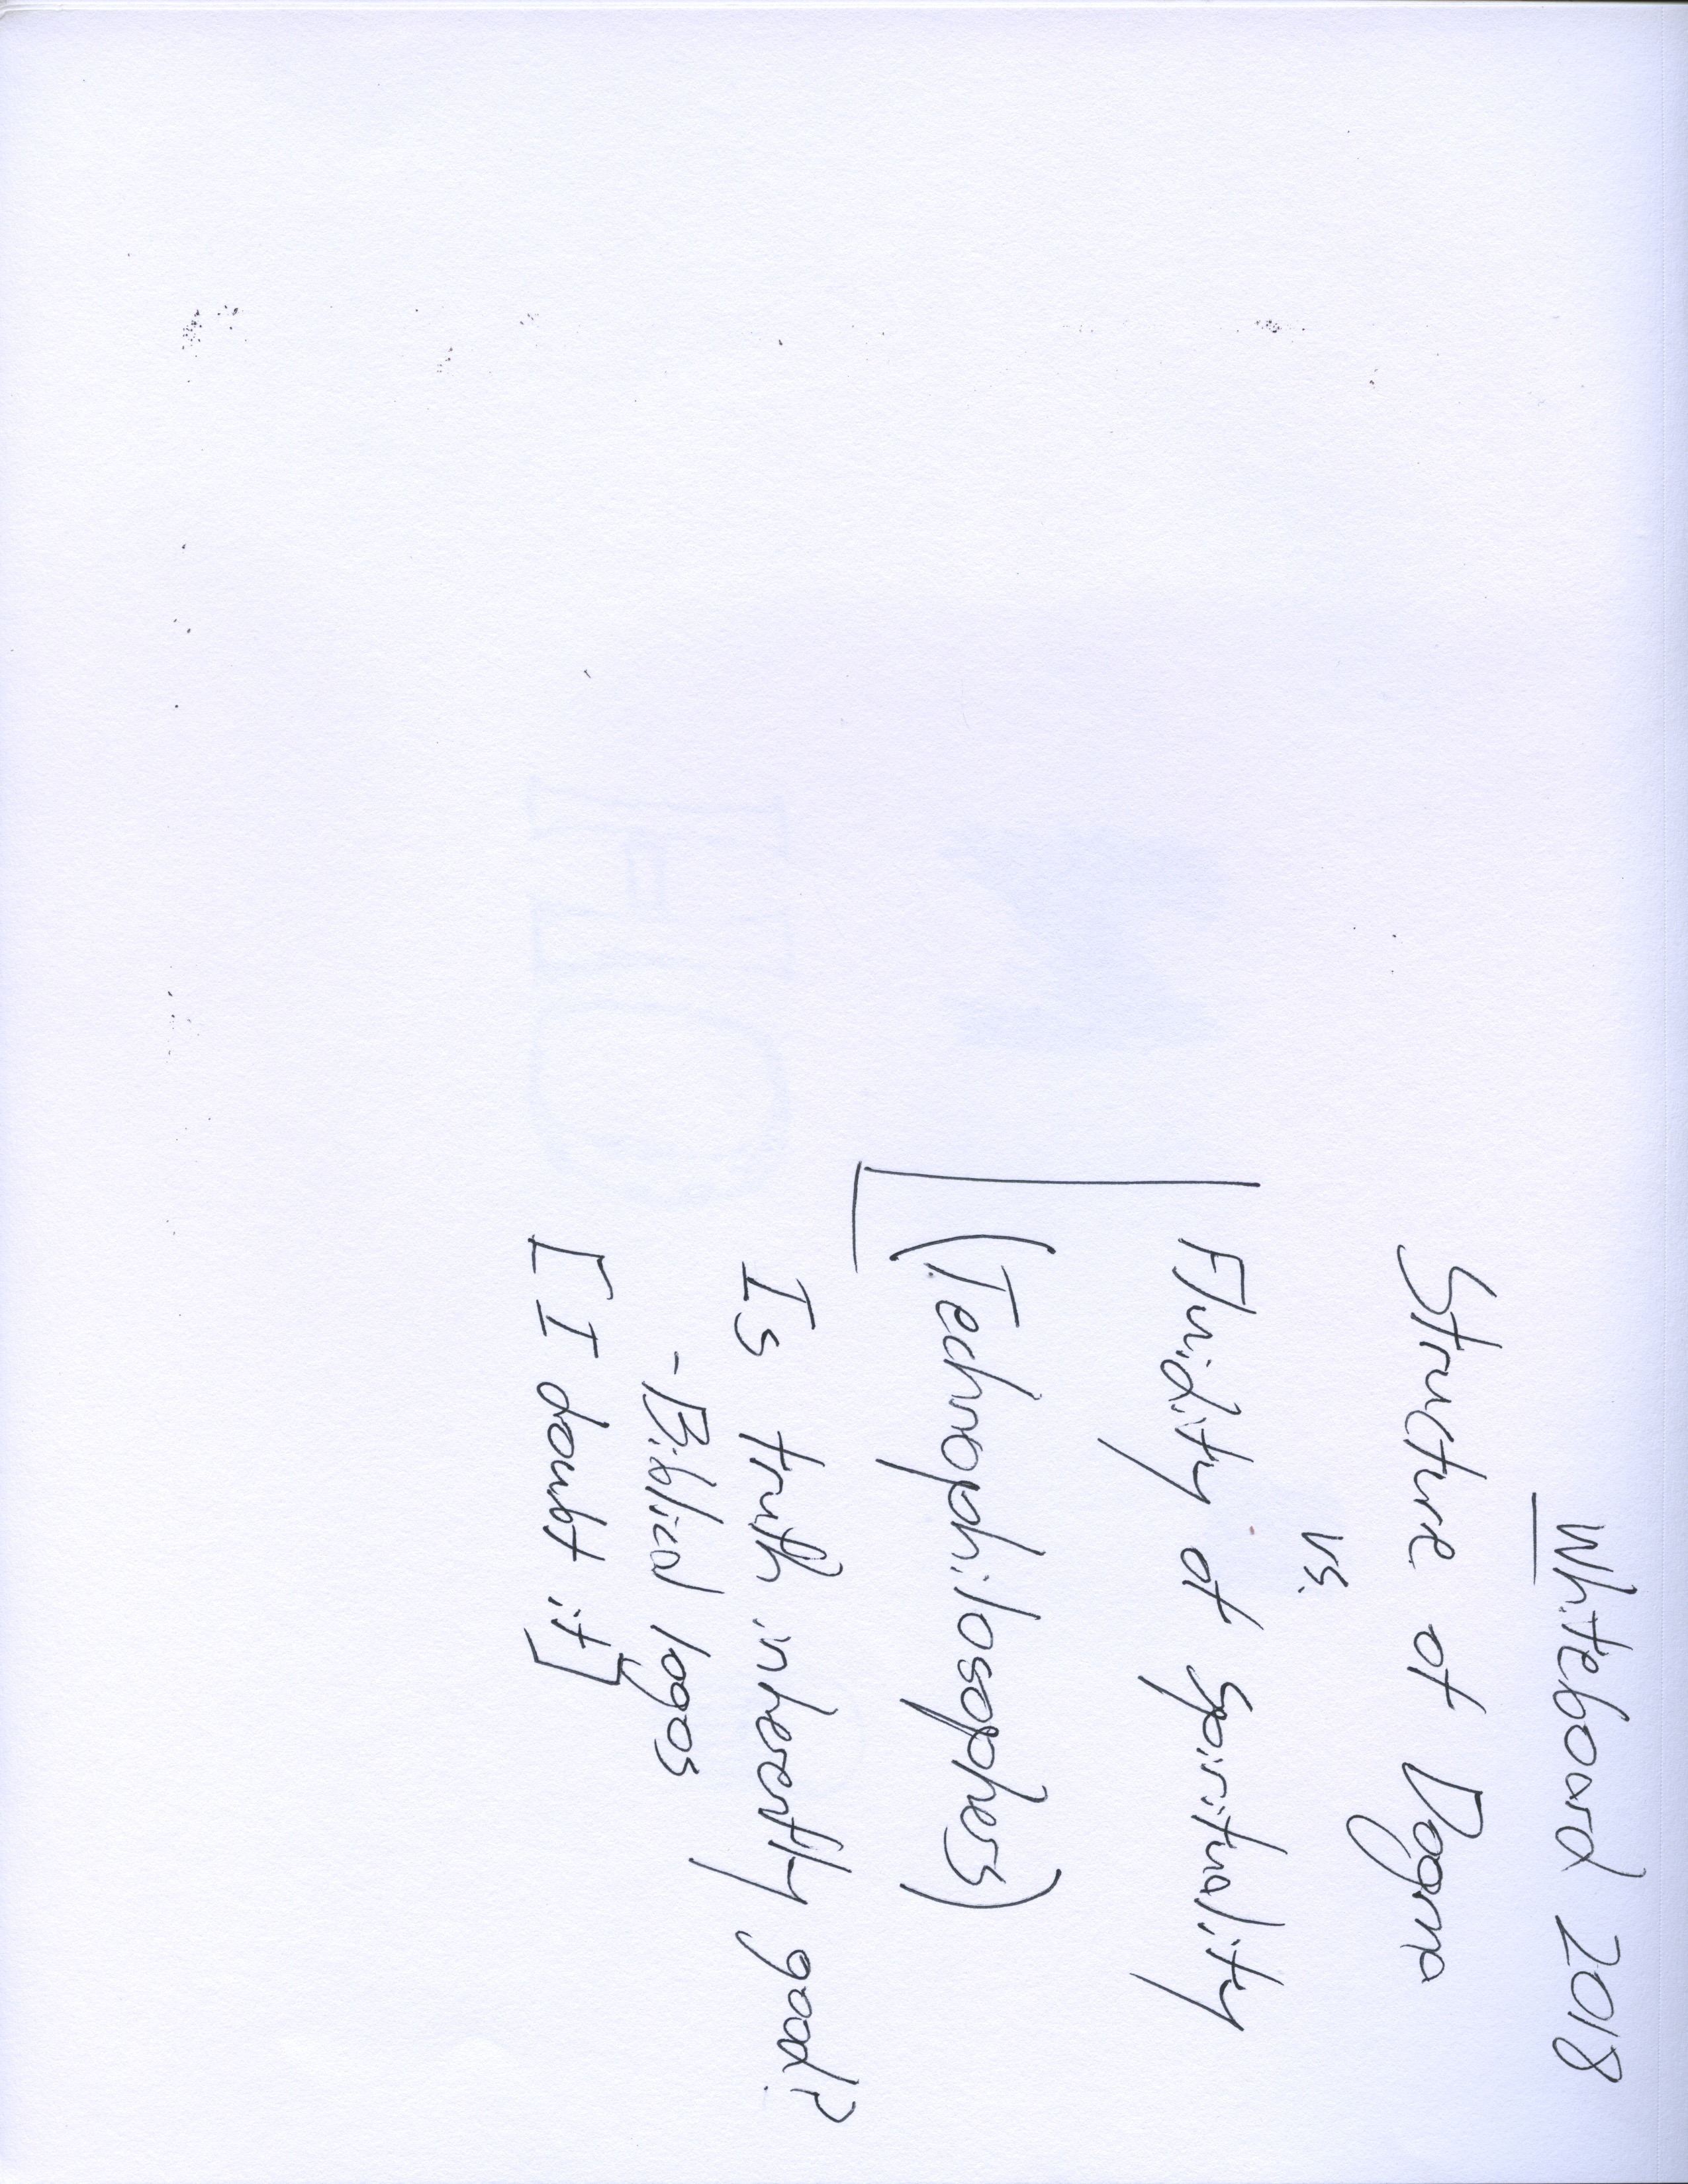 Whiteboard 2018
Structure of Dogma
vs.
Fluidity of Spirituality
(Technophilosophers)
Is truth inherently good?
- Biblical logos
[I doubt it]